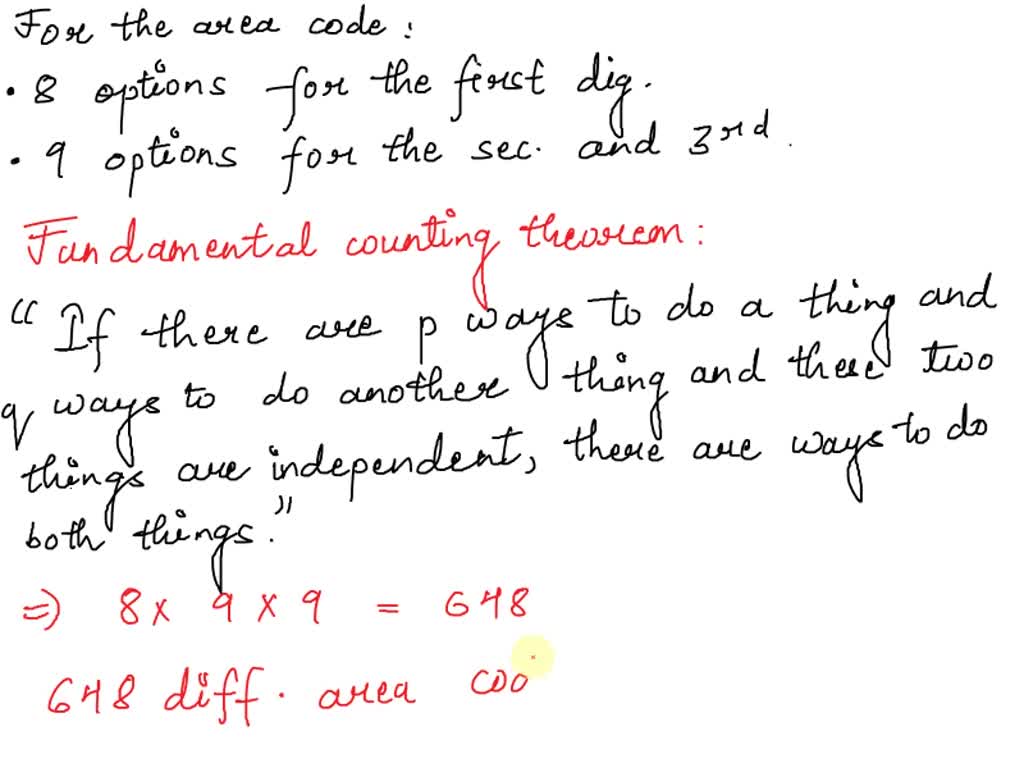 For the area code :
• 8 options for the first dig.
• 9 options for the sec. and 3rd.
Fundamental counting theorem :
“If there are p ways to do a thing and
q ways to do another thing and these two
things are independent, there are ways to do
both things.”
⇒ 8 x 9 x 9 = 648
648 diff. area coo